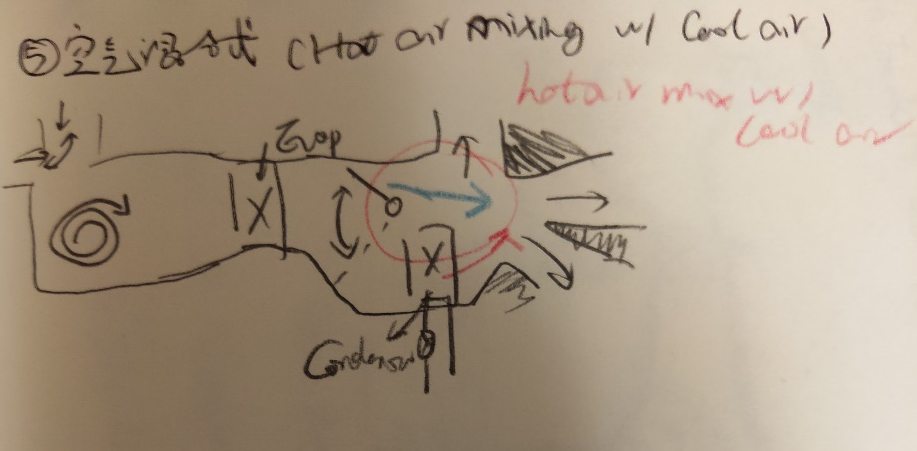 ⑤空气混合式 (Hot air mixing w/ Cool air)
hot air mix w/
Cool air
Evap
X
X
Condenser